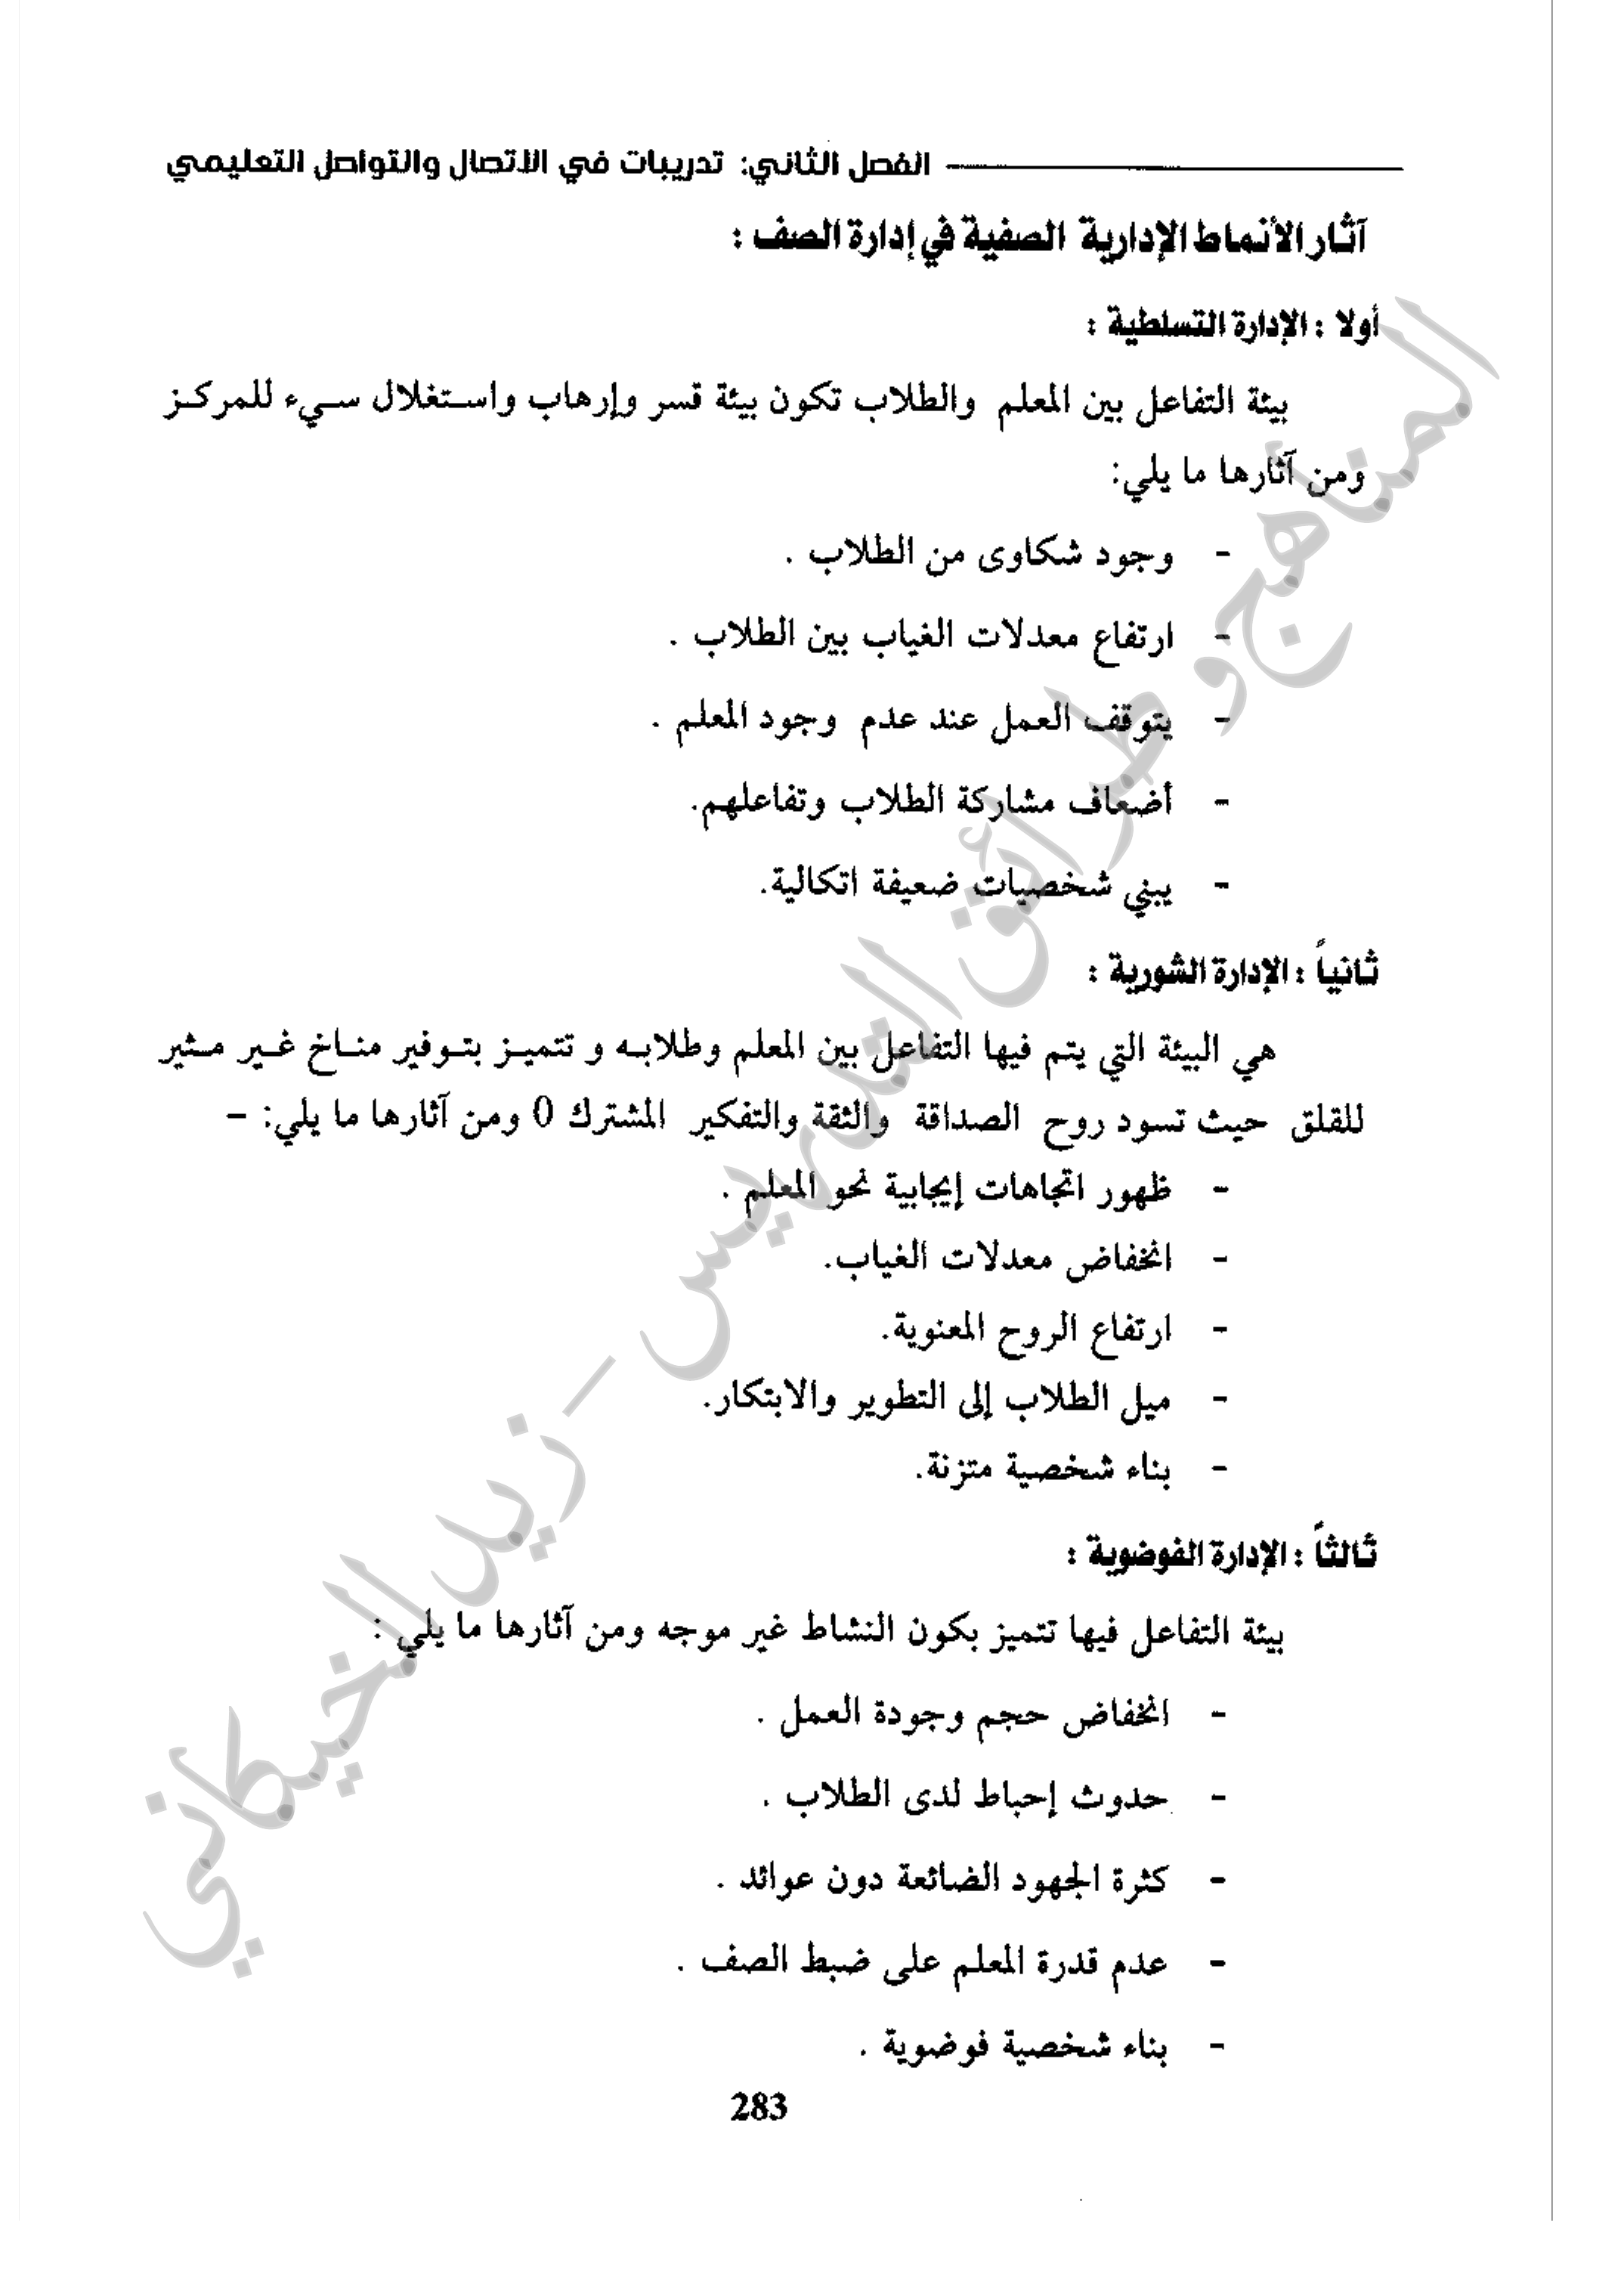 الفصل الثاني: تدريبات في الاتصال والتواصل التعليمي
آثار الأنماط الإدارية الصفية في إدارة الصف :
أولا : الإدارة التسلطية :
بيئة التفاعل بين المعلم والطلاب تكون بيئة قسر وإرهاب واستغلال سيء للمركز
ومن آثارها ما يلي:
- وجود شكاوى من الطلاب .
- ارتفاع معدلات الغياب بين الطلاب .
- يتوقف العمل عند عدم وجود المعلم .
- أضعاف مشاركة الطلاب وتفاعلهم.
- يبني شخصيات ضعيفة اتكالية.
ثانياً : الإدارة الشورية :
هي البيئة التي يتم فيها التفاعل بين المعلم وطلابه و تتميز بتوفير مناخ غير مثير
للقلق حيث تسود روح الصداقة والثقة والتفكير المشترك 0 ومن آثارها ما يلي: -
- ظهور اتجاهات إيجابية نحو المعلم .
- انخفاض معدلات الغياب.
- ارتفاع الروح المعنوية.
- ميل الطلاب إلى التطوير والابتكار.
- بناء شخصية متزنة.
ثالثاً : الإدارة الفوضوية :
بيئة التفاعل فيها تتميز بكون النشاط غير موجه ومن آثارها ما يلي :
- انخفاض حجم وجودة العمل .
- حدوث إحباط لدى الطلاب .
- كثرة الجهود الضائعة دون عوائد .
- عدم قدرة المعلم على ضبط الصف .
- بناء شخصية فوضوية .
283
المناهج و طرائق التدريس - زيد الخيكاني